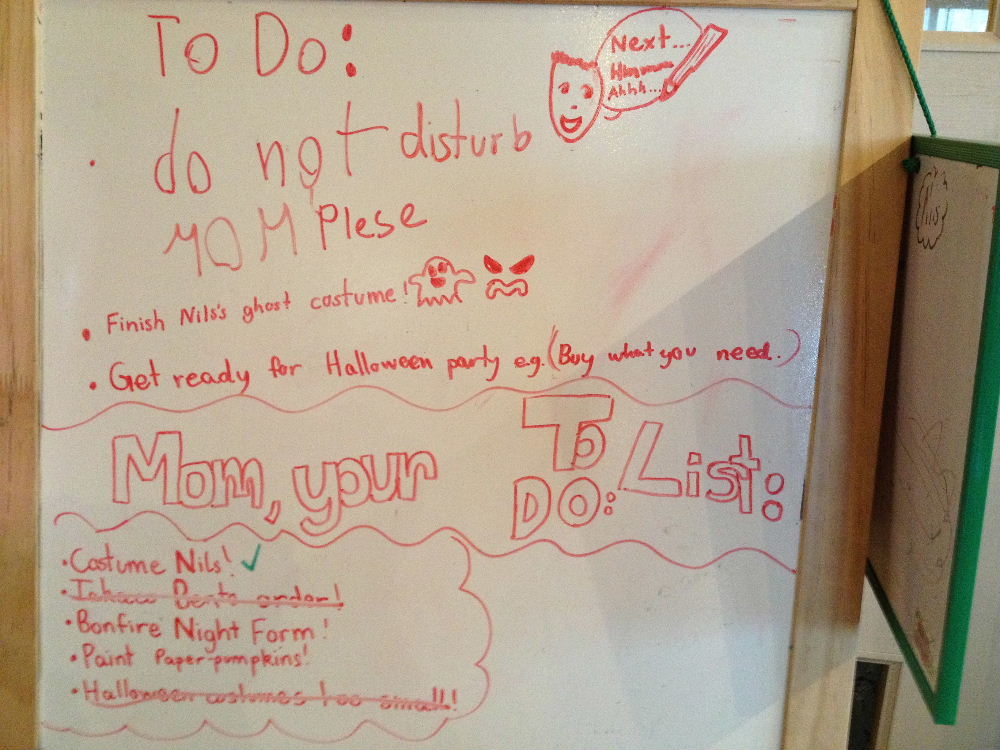 To Do:
Next...
Hmmmm
Ahhh...
• do not disturb
MOM Plese
• Finish Nils's ghost costume!
• Get ready for Halloween party e.g. (Buy what you need.)
Mom, your To Do: List:
• Costume Nils! ✓
• Bento order!
• Bonfire Night Form!
• Paint Paper-pumpkins!
• Halloween costumes too small!!
Nils